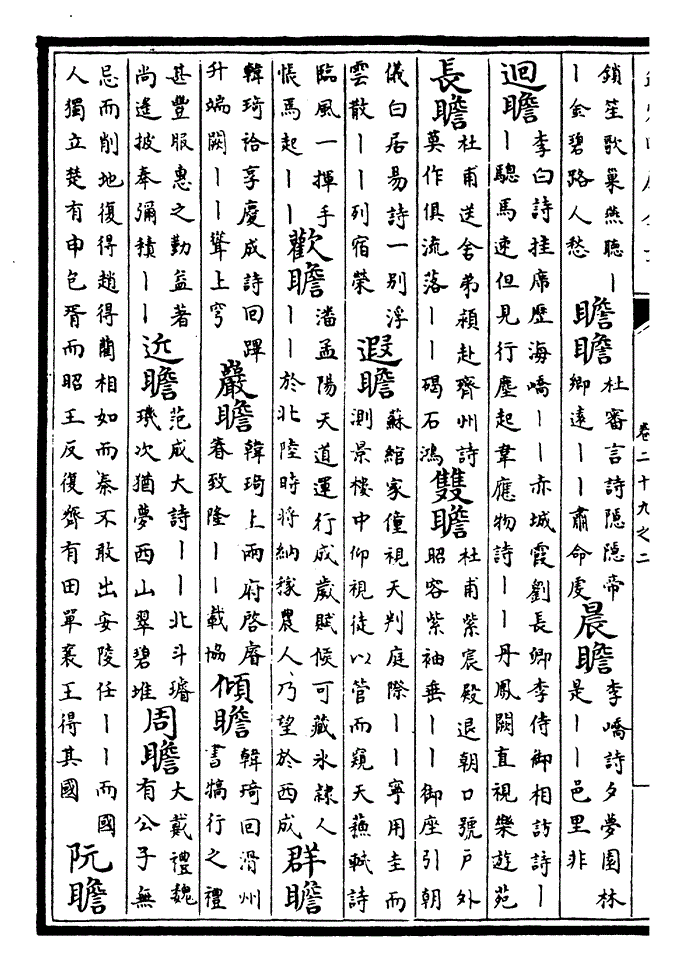 鎖笙歌巢燕聽丨
丨金碧路人愁
瞻瞻
杜審言詩隱隱帝
鄉遠丨丨肅命虔
晨瞻
李嶠詩夕夢園林
是丨丨邑里非
迴瞻
李白詩挂席歷海嶠丨丨赤城霞劉長卿李侍御相訪詩丨
丨驄馬速但見行塵起韋應物詩丨丨丹鳳闕直視樂遊苑
長瞻
杜甫送舍弟頴赴齊州詩
莫作俱流落丨丨碣石鴻
雙瞻
杜甫紫宸殿退朝口號戶外
昭容紫袖垂丨丨御座引朝
儀白居易詩一別浮
雲散丨丨列宿榮
遐瞻
蘇綰家僮視天判庭際丨丨寧用圭而
測景樓中仰視徒以管而窺天蘇軾詩
臨風一揮手
悵焉起丨丨
歡瞻
潘孟陽天道運行成歲賦候可藏氷隸人
丨丨於北陸時將納稼農人乃望於西成
群瞻
韓琦祫享慶成詩回蹕
升端闕丨丨聳上穹
嚴瞻
韓琦上兩府啓睿
眷致隆丨丨載協
傾瞻
韓琦回滑州
書犒行之禮
甚豐服惠之勤益著
尚遙披奉彌積丨丨
近瞻
范成大詩丨丨北斗璿
璣次猶夢西山翠碧堆
周瞻
大戴禮魏
有公子無
忌而削地復得趙得藺相如而秦不敢出安陵任丨丨而國
人獨立楚有申包胥而昭王反復齊有田單襄王得其國
阮瞻
卷二十九之二